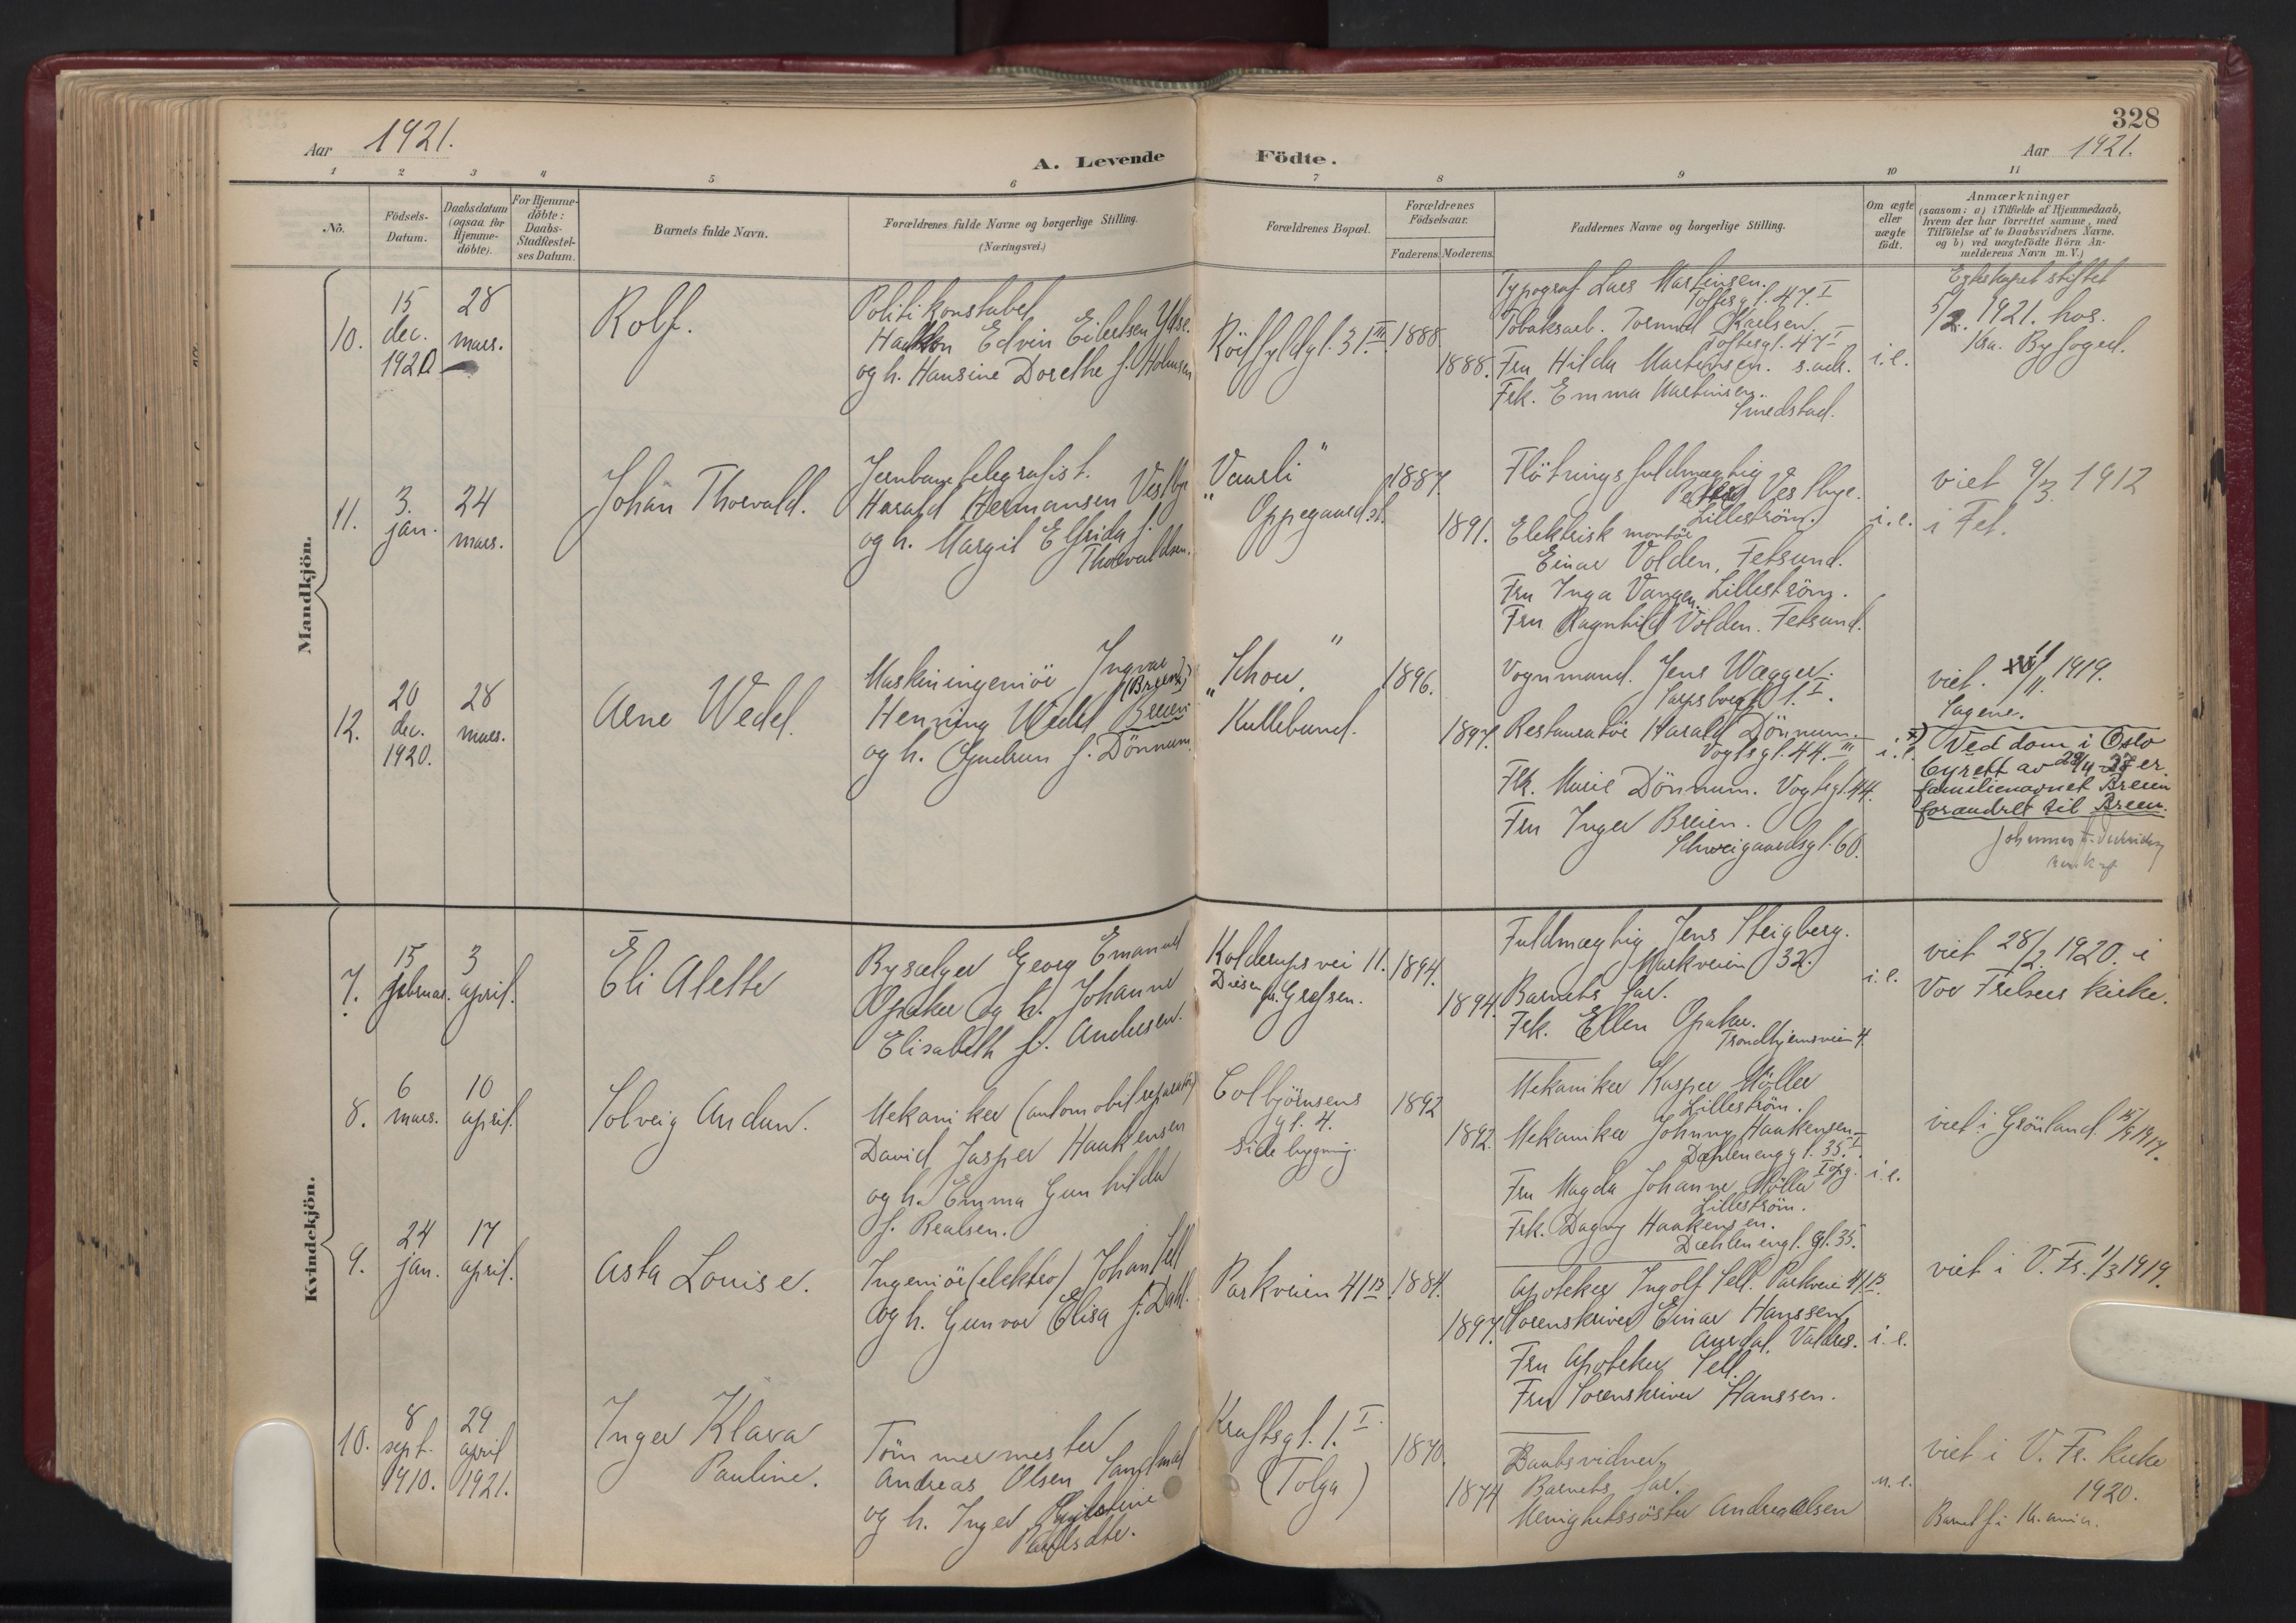 328
Aar 1921.
A. Levende Födte.
Aar 1921.
1 2 3 4 5 6 7 8 9 10 11
No.
Födsels-
Datum.
Daabsdatum
(ogsaa for
Hjemme-
döbte).
For Hjemme-
döbte:
Daabs-
Stadfestel-
ses Datum.
Barnets fulde Navn.
Forældrenes fulde Navne og borgerlige Stilling.
(Næringsvei.)
Forældrenes Bopæl.
Forældrenes
Födselsaar.
Faderens. Moderens.
Faddernes Navne og borgerlige Stilling.
Om ægte
eller
uægte
födt.
Anmærkninger
(saasom: a) i Tilfælde af Hjemmedaab,
hvem der har forrettet samme, med
Tilföielse af to Daabsvidners Navne,
og b) ved uægtefödte Börn An-
melderens Navn m. V.)
Mandkjön.
10.
15
dec.
1920
28
mars.
Rolf.
Politikonstabel
Haakon Edvin Eilertsen
og h. Hansine Dorethe f. Holmsen
31 III
1888
1888.
Typograf Lars Martinsen.
Toftesgt. 47 I
Tobaksarb. Tormod Karlsen.
Toftesgt. 47 I
Fru Hilda Martinsen. s. adr.
Frk. Emma Martinsen.
Smedstad.
i. e.
Egteskapet stiftet
5/2. 1921. hos.
Kra. Byfoged.
11.
3.
jan.
24
mars.
Johan Thorvald.
Jernbanetelegrafist.
Harald Hermansen Vestbye
og h. Margit Elfrida f.
Thorvaldsen.
"Vaarli"
Oppegaard st.
1887.
1891.
Flötningsfuldmægtig
Vestbye.
Lilleström.
Elektrisk montör
Einar Volden, Fetsund.
Fru Inga Vangen. Lilleström.
Fru Ragnhild Volden. Fetsund.
i. e.
viet 9/3 1912
i Fet.
12.
20
dec.
1920.
28
mars.
Arne Wedel.
Maskiningeniör Ingvar
(Breen)
Henning Wedel Breien
og h. Gudrun f. Dönnum.
"Schou"
Kullebund.
1896.
1897.
Vognmand. Jens Wægger.
Sarpsborggt. 1. I.
Restauratör Harald Dönnum.
Vogtsgt. 44. III
Frk. Marie Dönnum. Vogtsgt. 44.
Fru Inger Breien.
Schweigaardsgt. 60.
i. e.
viet. /11. 1919.
Sagene.
Ved dom i Oslo
byrett av 29/11 27 er
familienavnet Breien
forandret til Breen.
Johannes
Kvindekjön.
7.
15
februar.
3
april.
Eli Alette
Bysælger Georg Emanuel
Opaker og h. Johanne
Elisabeth f. Andersen.
Kolderups vei 11.
pr. Grefsen.
1894.
1894.
Fuldmægtig Jens Steigberg.
Markveien 32.
Barnets far.
Frk. Ellen Opaker.
Trondhjemsveien 4.
i. e.
viet 28/2. 1920. i
Vor Frelsers kirke.
8.
6
mars.
10
april.
Solveig Andun.
Mekaniker (automobilreparatör)
David Jasper Haakensen
og h. Emma Gunhilda
f. Realsen.
Colbjörnsens
gt. 4.
Sidebygning.
1892
1892.
Mekaniker Kasper Möller
Lilleström.
Mekaniker Johnny Haakensen
Dæhlenenggt. 35. I
I opg.
Fru Magda Johanne Möller
Lilleström.
Frk. Dagny Haakensen.
Dæhleneng. gt. 35.
i. e.
viet i Grönland 15/9 1917.
9.
24
jan.
17
april.
Asta Louise.
Ingeniör (elektro) Johan Sell
og h. Gunvor Elisa f. Dahl.
Parkveien 41 B.
1884.
1897.
Apoteker Ingolf Sell. Parkvei 41 B.
Sorenskriver Einar Hanssen,
Aurdal, Valdres.
Fru Apoteker Sell.
Fru Sorenskriver Hanssen.
i. e.
viet i V. Fr. 1/3 1919.
10.
8
sept.
1910.
29
april
1921.
Inger Klara
Pauline.
Tömmermester
Andreas Olsen Sandmæl
og h. Inger
Paulsdtr.
Kraftsgt. 1. I
(Tolga)
1870.
1874
Daabsvidner.
Barnets far.
Menighetssöster Andrea Olsen
u. e.
viet i V. Fr. kirke
1920.
Barnet f. i Kr.ania.